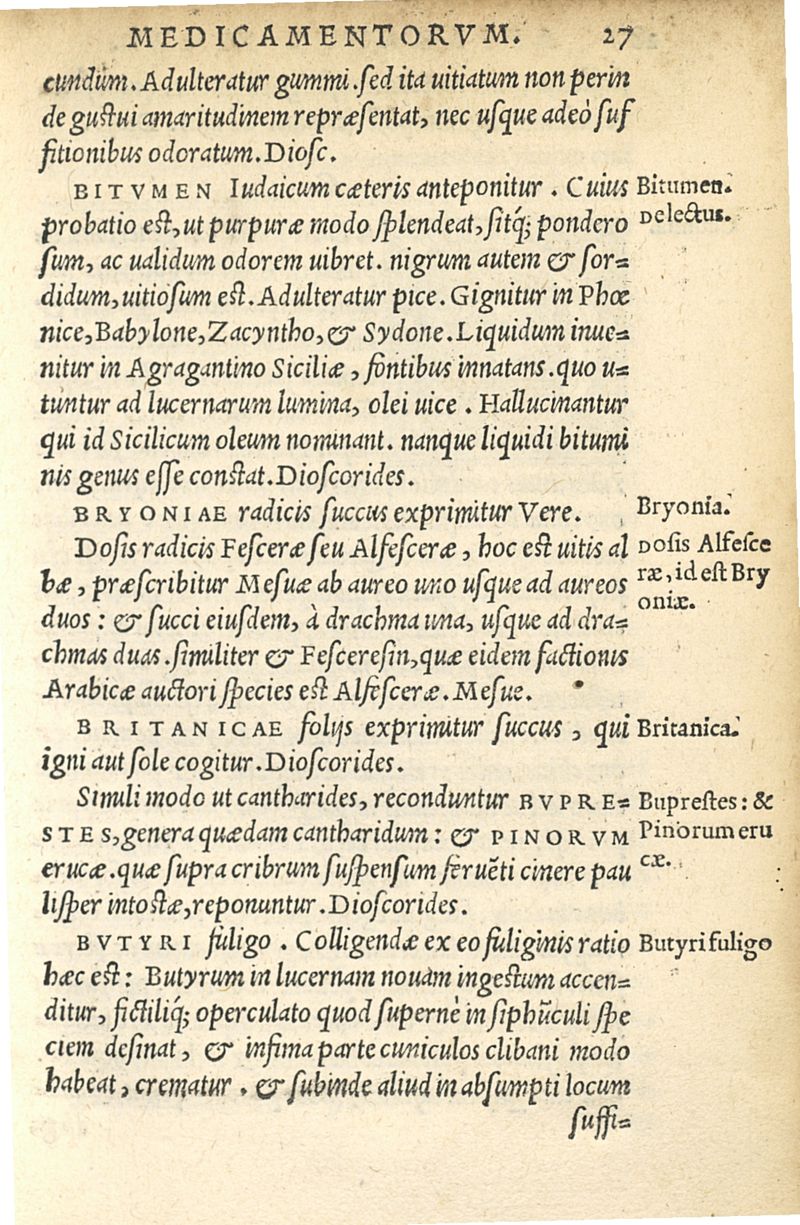 MEDICAMENTORVM. 27
cundum. Adulteratur gummi. sed ita uitiatum non perin
de gustui amaritudinem repræsentat, nec usque adeò suf
fitionibus odoratum. Diosc.
BITVMEN Iudaicum cæteris anteponitur. Cuius
Bitumen.
probatio est, ut purpuræ modo splendeat, sitq́; pondero
Delectus.
sum, ac ualidum odorem uibret. nigrum autem & sor=
didum, uitiosum est. Adulteratur pice. Gignitur in Phœ
nice, Babylone, Zacyntho, & Sydone. Liquidum inue=
nitur in Agragantino Siciliæ, fontibus innatans. quo u=
tuntur ad lucernarum lumina, olei uice. Hallucinantur
qui id Sicilicum oleum nominant. nanque liquidi bitumi
nis genus esse constat. Dioscorides.
BRYONIAE radicis succus exprimitur Vere.
Bryonia.
Dosis radicis Fesceræ seu Alfesceræ, hoc est uitis al
Dosis Alfesce
bæ, præscribitur Mesuæ ab aureo uno usque ad aureos
ræ, id est Bry
duos: & succi eiusdem, à drachma una, usque ad dra=
oniæ.
chmas duas. similiter & Fesceresin, quæ eidem factionis
Arabicæ auctori species est Alfesceræ. Mesue.
BRITANICAE folijs exprimitur succus, qui
Britanica.
igni aut sole cogitur. Dioscorides.
Simili modo ut cantharides, reconduntur BVPRE=
Buprestes: &
STES, genera quædam cantharidum: & PINORVM
Pinorum eru
erucæ. quæ supra cribrum suspensum feruẽti cinere pau
cæ.
lisper intostæ, reponuntur. Dioscorides.
BVTYRI fuligo. Colligendæ ex eo fuliginis ratio
Butyri fuligo
hæc est: Butyrum in lucernam nouam ingestum accen=
ditur, fictiliq́; operculato quod supernè in siphũculi spe
ciem desinat, & infima parte cuniculos clibani modo
habeat, crematur. & subinde aliud in absumpti locum
suffi=